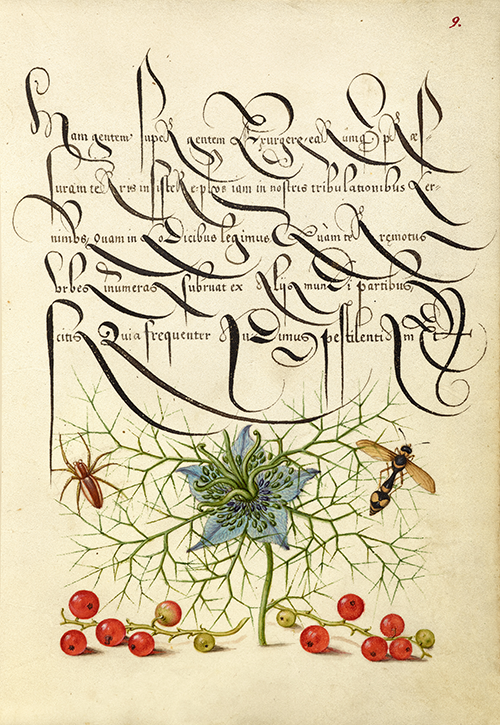 9.
Nam gentem super gentem Exurgere, earumq; præs
suram terris insistere, plus iam in nostris tribulationibus Cer-
nimus, Quam in Codicibus legimus. Quàm terręmotus
Urbes inumeras subruat ex alijs mundi partibus,
scitis Quia frequenter audiuimus pestilentiam